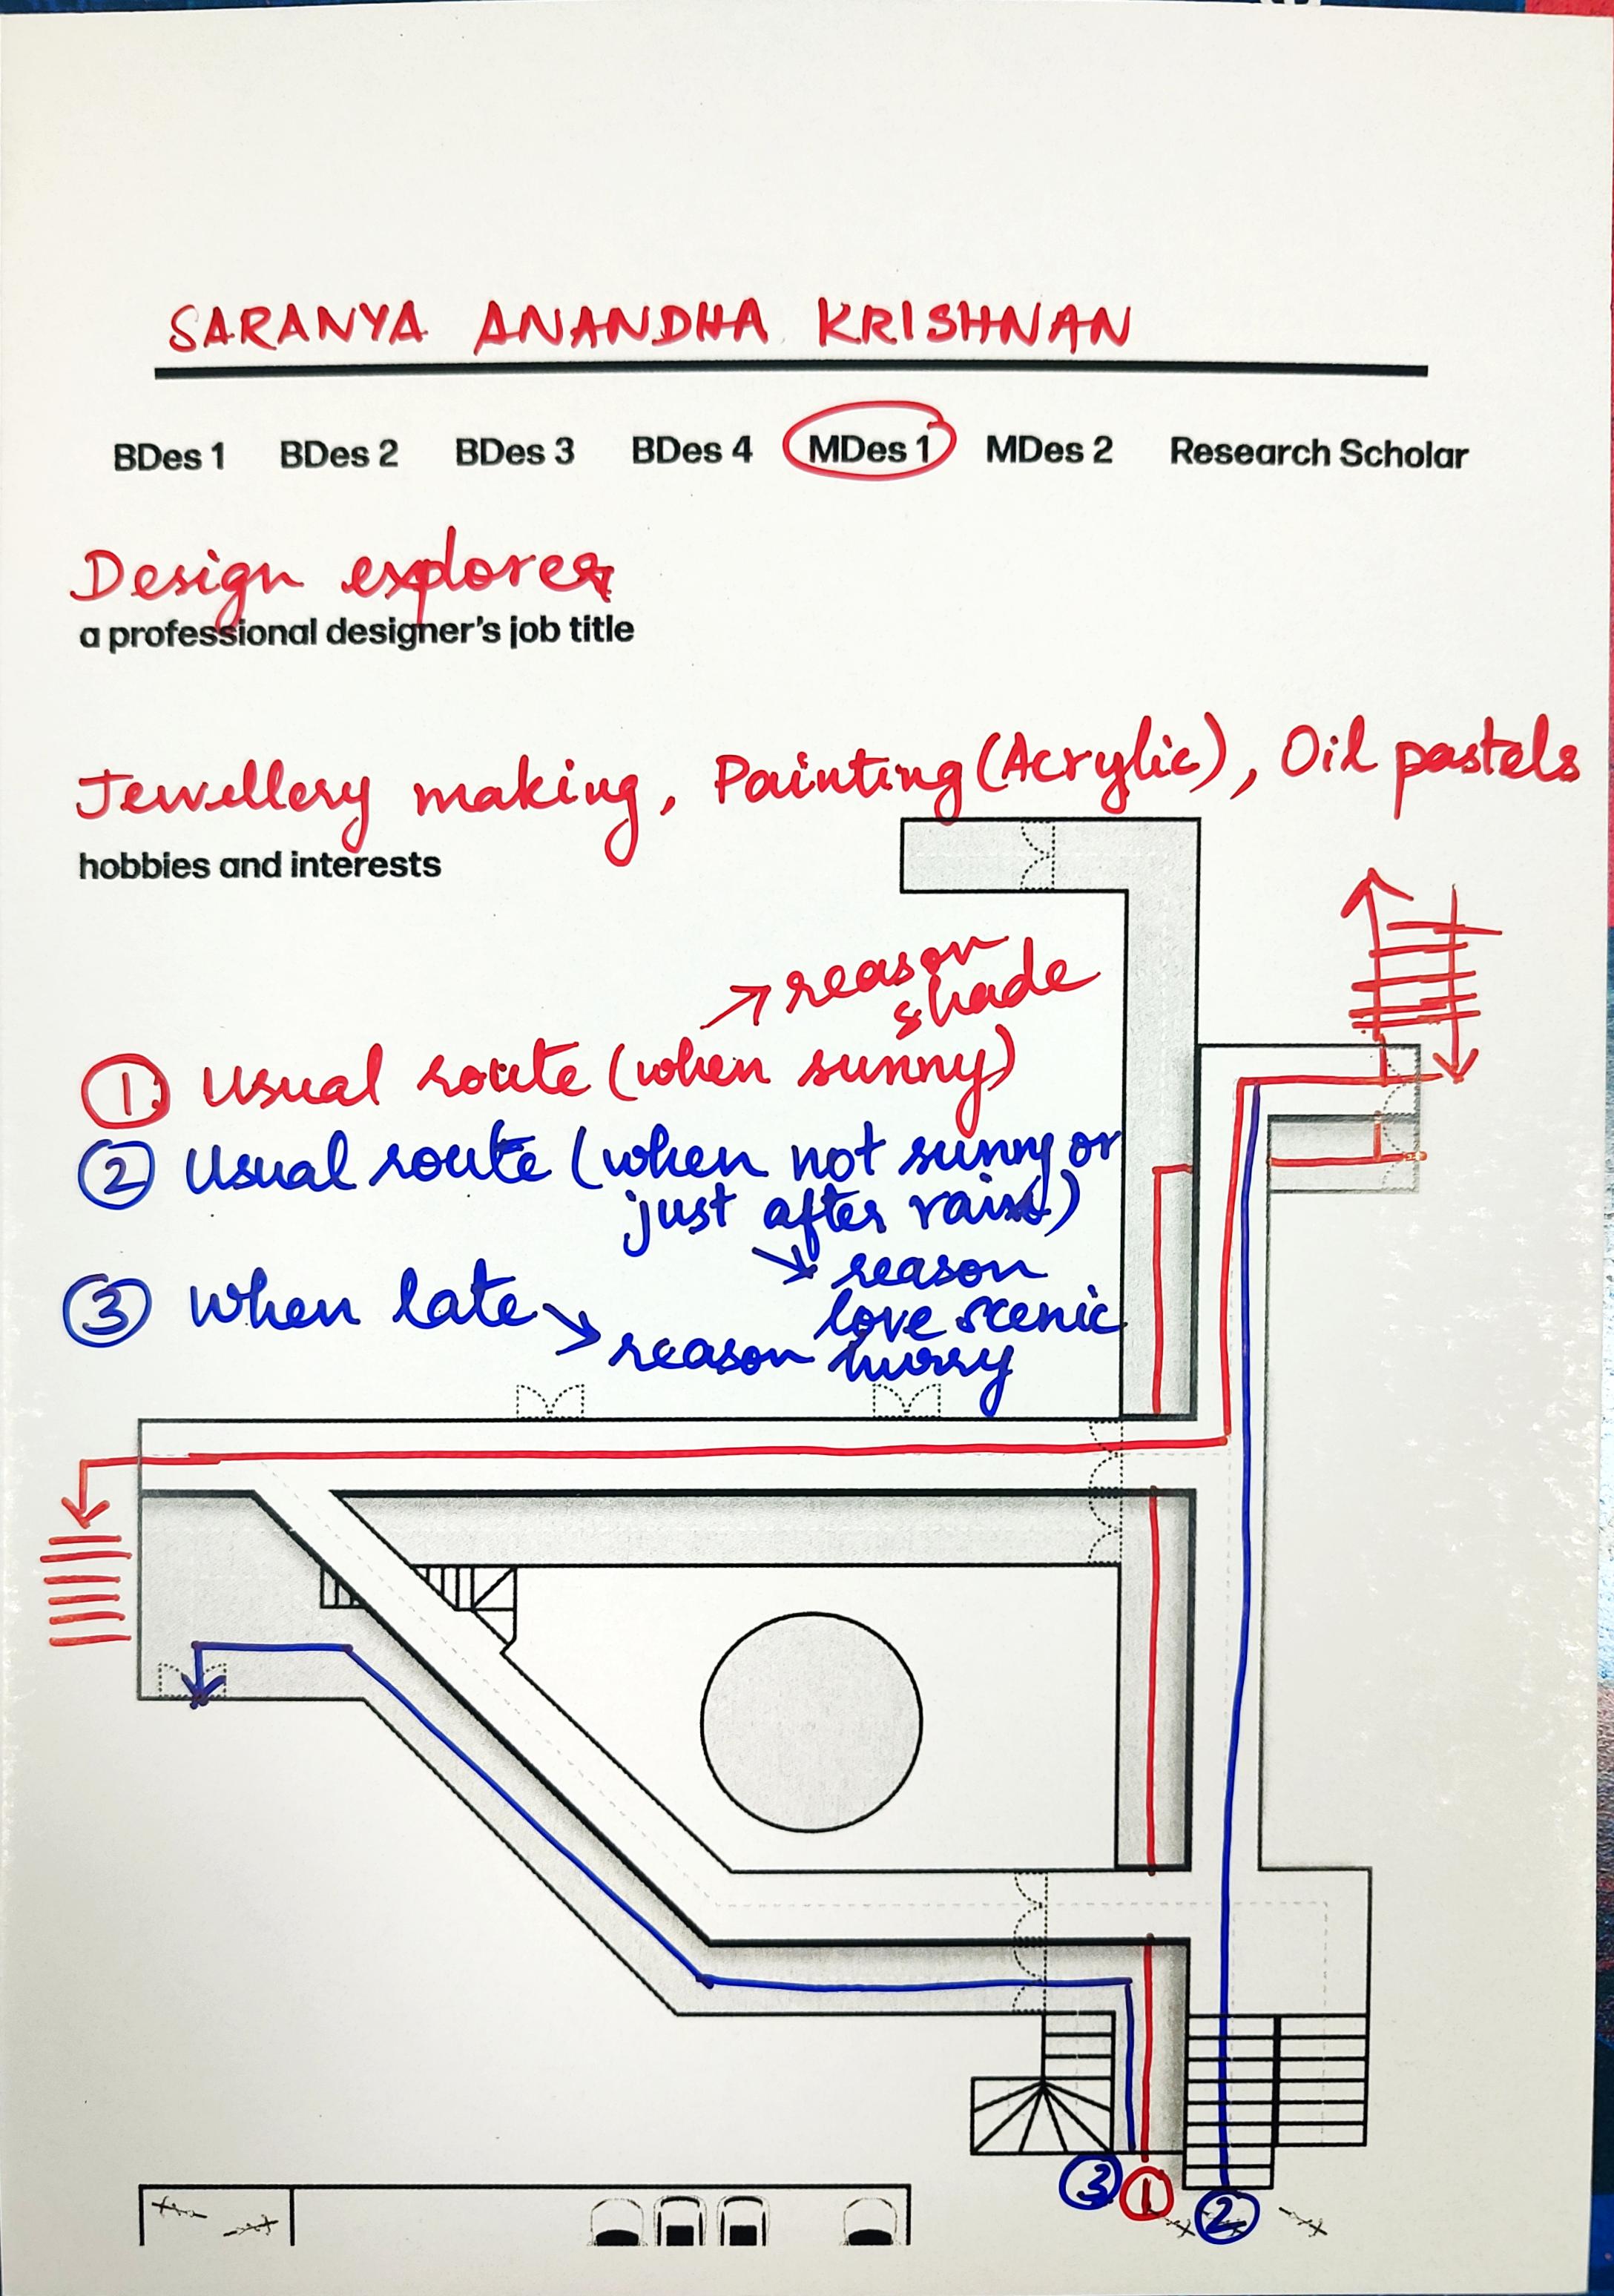 SARANYA ANANDHA KRISHNAN
BDes 1 BDes 2 BDes 3 BDes 4 MDes 1 MDes 2 Research Scholar
Design explorer
a professional designer's job title
Jewellery making, Painting (Acrylic), Oil pastels
hobbies and interests
→ reason
shade
1. Usual route (when sunny)
2 Usual route (when not sunny or
just after rain)
→ reason
love scenic
3 When late → reason hurry
3 1 2